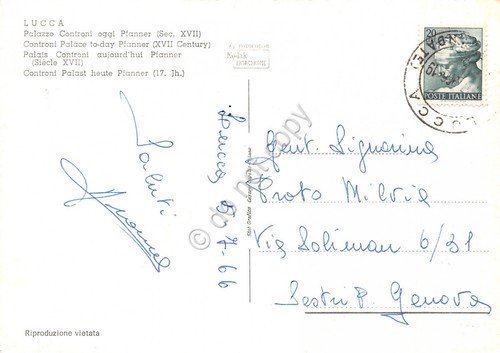 LUCCA
Palazzo Controni oggi Pfanner (Sec. XVII)
Controni Palace to-day Pfanner (XVII Century)
Palais Controni aujourd'hui Pfanner
(Siècle XVII)
Controni Palast heute Pfanner (17. Jh.)
Kodak
20
POSTE ITALIANE
LUCCA
Saluti
Lucca 5-7-66
Gent. Signorina
Proto Milvia
Via Soliman 6/31
Sestri P. Genova
do not copy
Riproduzione vietata